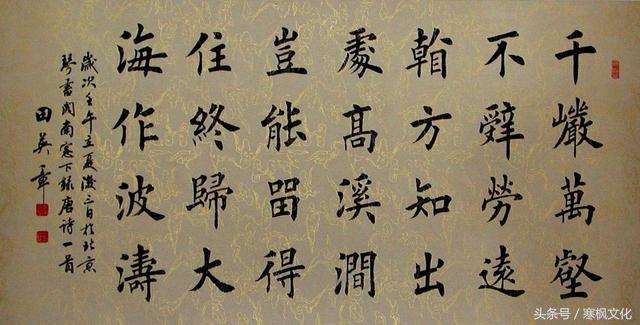 千巖萬壑
不辭勞遠
看方知出
處髙溪澗
豈能畱得
住終歸大
海作波濤
歲次壬午立夏後三日於北京
琴書閣南窓下錄唐詩一首
田英章
头条号 / 寒枫文化